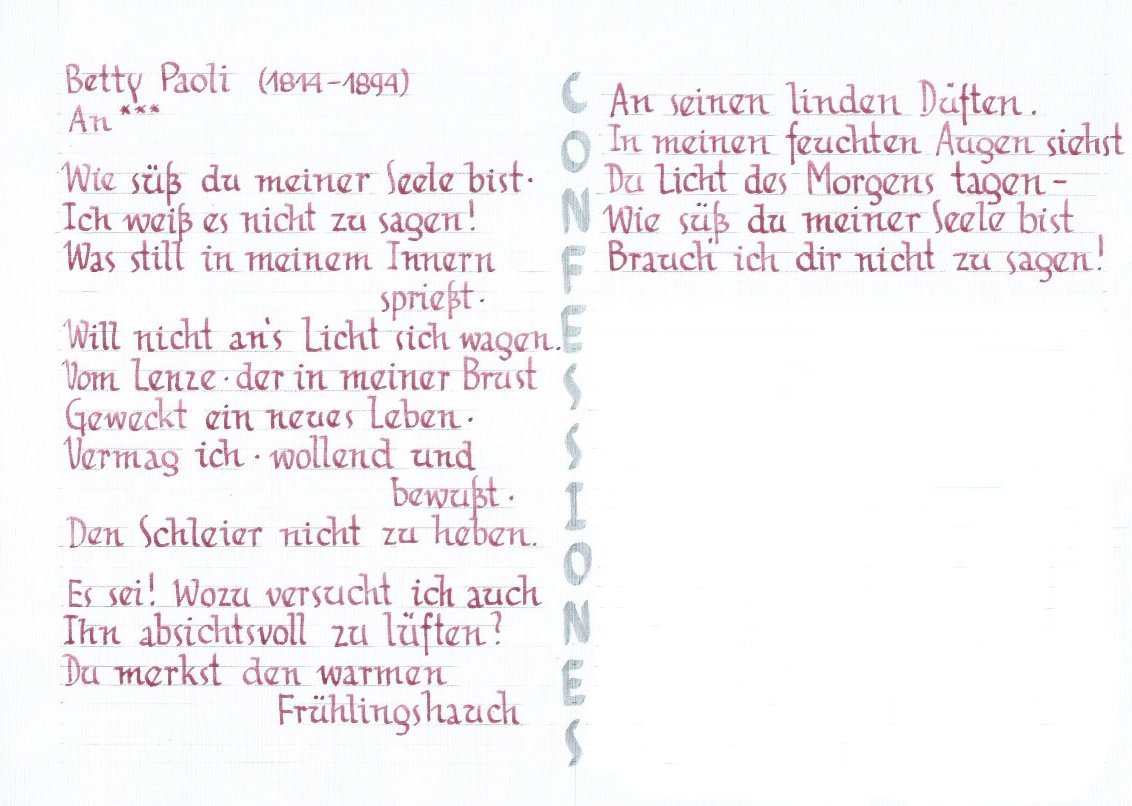 Betty Paoli (1814-1894)
An ***
Wie süß du meiner Seele bist·
Ich weiß es nicht zu sagen!
Was still in meinem Innern
sprießt·
Will nicht an's Licht sich wagen.
Vom Lenze · der in meiner Brust
Geweckt ein neues Leben·
Vermag ich · wollend und
bewußt·
Den Schleier nicht zu heben.
Es sei! Wozu versucht ich auch
Ihn absichtsvoll zu lüften?
Du merkst den warmen
Frühlingshauch
CONFESSIONES
An seinen linden Düften.
In meinen feuchten Augen siehst
Du Licht des Morgens tagen-
Wie süß du meiner Seele bist
Brauch ich dir nicht zu sagen!